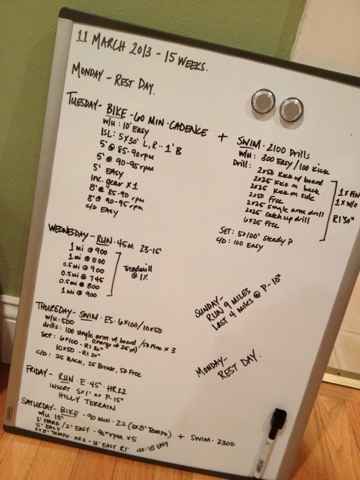 11 MARCH 2013 - 15 WEEKS.
MONDAY - REST DAY.
TUESDAY - BIKE - 60 MIN - CADENCE + SWIM - 2100 Drills
W/U: 10' EASY
ISL: 5x30" L, R - 1' B
5' @ 85-90rpm
5' @ 90-95rpm
5' EASY
INC. gear x 1
8' @ 85-90 rpm
8' @ 90-95 rpm
C/D EASY
W/U: 300 EASY / 100 KICK
Drill: 2x50 Kick w/ board
2x25 Kick on back
2x25 Kick on side
2x50 Free
2x25 single arm drill
2x25 Catch up drill
6x25 Free
1 x FIN
1 x W/O
RI 30"
SET: 5x100' STEADY P
C/D: 100 EASY
WEDNESDAY - RUN - 45m Z3-15"
1 mi @ 900
1 mi @ 800
0.5 mi @ 900
0.5 mi @ 745
0.5 mi @ 800
1 mi @ 900
Treadmill @ 1%
SUNDAY -
RUN 9 MILES
LAST 4 MILES @ P-10"
MONDAY -
REST DAY.
THURSDAY - SWIM - ES - 6x100/10x50
W/U: 500
drills: 100 single arm w/ board / 50 FREE x 3
SET: 6x100 - RI 20"
10x50 - RI 20"
C/D: 25 BACK, 25 Breast, 50 Free
FRIDAY - RUN - E - 45" HR22
INSERT 5x1' at P-15"
HILLY TERRAIN
SATURDAY - BIKE - 90 MIN - Z2 (3x8' TEMPO) + SWIM - 2300
W/U 15'
5' HARD / 2' EASY - 90+ rpm x5
5' EASY
3x8' TEMPO - HR3 - 10' EASY RI